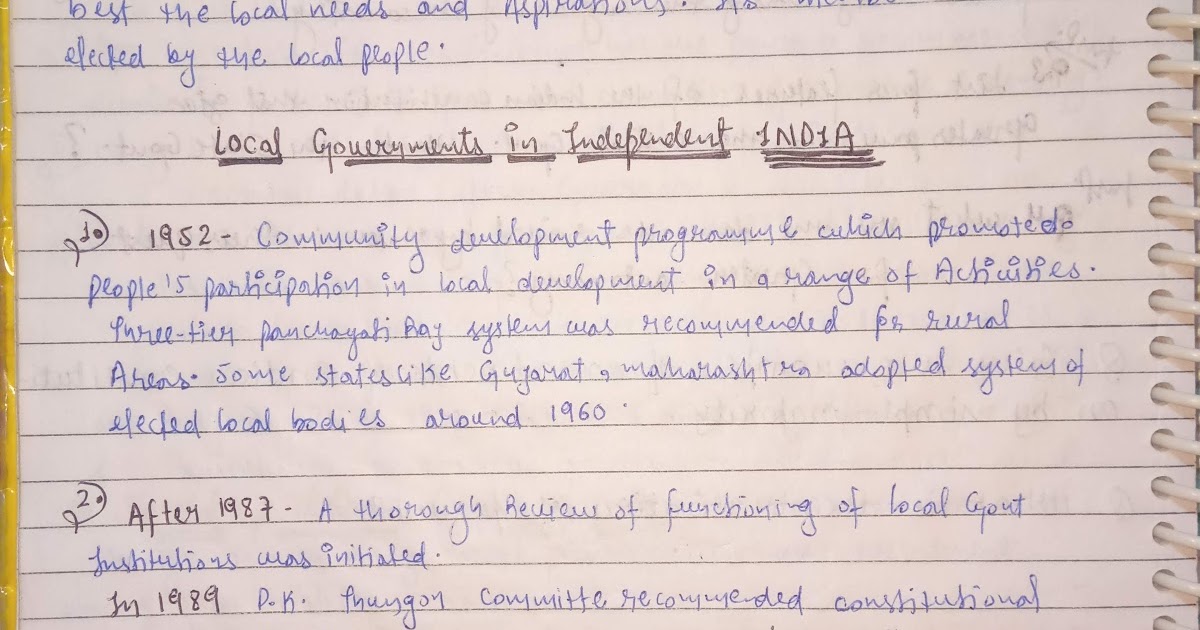 best the local needs and Aspirations. Its
elected by the local people.
Local Governments in Independent INDIA
1. 1952 - Community development programme which promoted
people's participation in local development in a range of Activities.
Three-tier panchayati Raj system was recommended for rural
Areas. Some states like Gujarat, maharashtra adopted system of
elected local bodies around 1960.
2. After 1987 - A thorough Review of functioning of local Govt
Institutions was initiated.
In 1989 P.K. Thungon Committe recommended constitutional